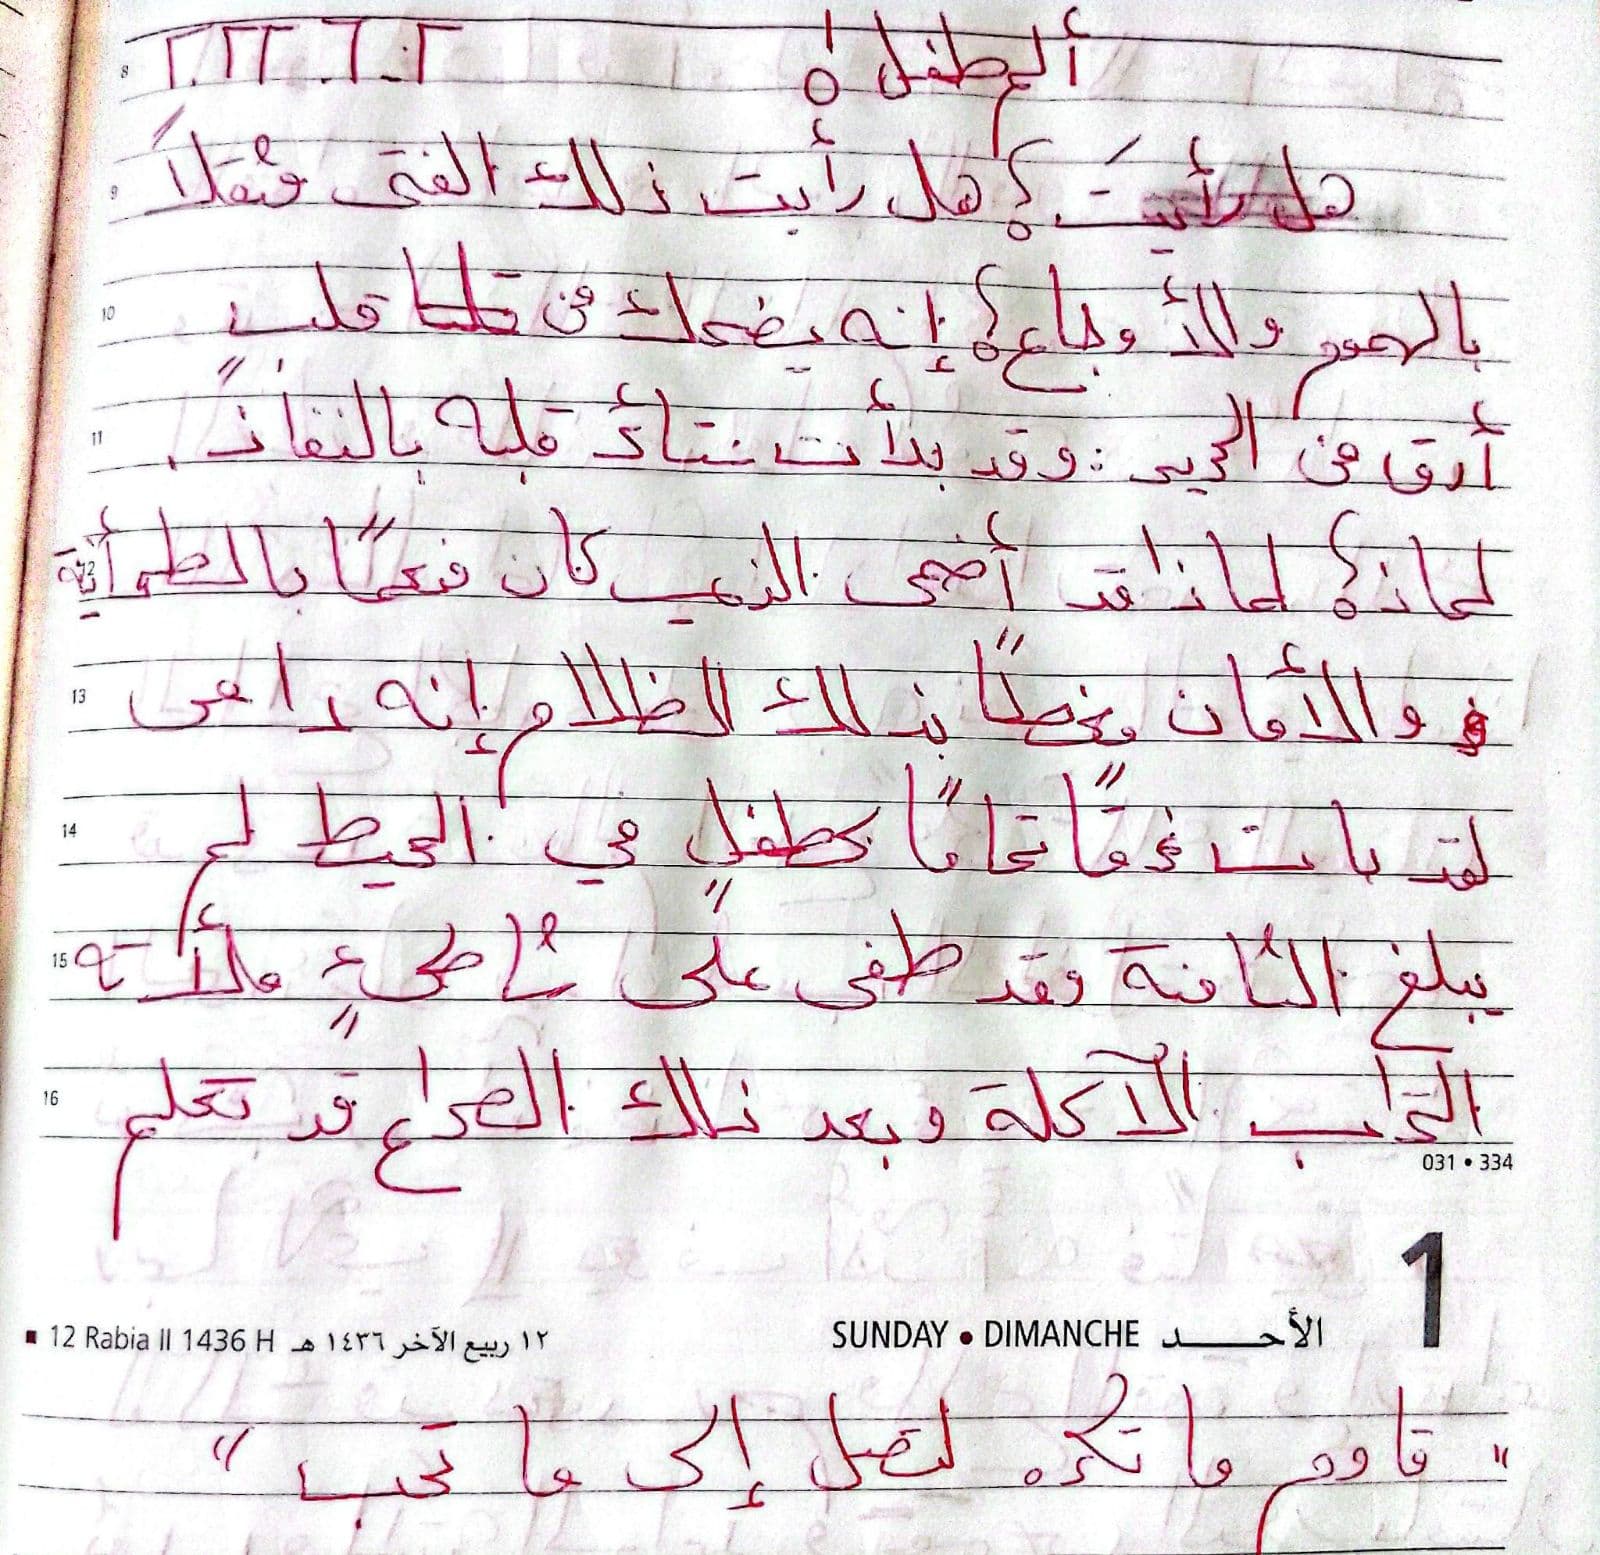 ألم طفل! ٢٠٢٢.٦.٢
8
هل رأيتَ؟ هل رأيت ذلك الفتى مثقلاً
9
بالهموم والأوجاع؟ إنه يضحك من قلب
10
أرق من الحرير: وقد بدأت تتأكد قلبه بالنفاذ.
11
لماذ؟ لماذا قد أضحى الذي كان مفعمًا بالطمأنية
12
والأمان مخطًا بذلك الظلام إنه راعى
13
لقد بات غمقًا تمامًا كطفلٍ في المحيط لم
14
يبلغ الثامنة وقد طفى على شاطىءٍ ملأته
15
التراب الآكلة وبعد ذلك الصراع قد تعلم
16
031 • 334
1
الأحد SUNDAY • DIMANCHE
١٢ ربيع الآخر ١٤٣٦ هـ 12 Rabia II 1436 H
"قاوم ما تكره لتصل إلى ما تحب"